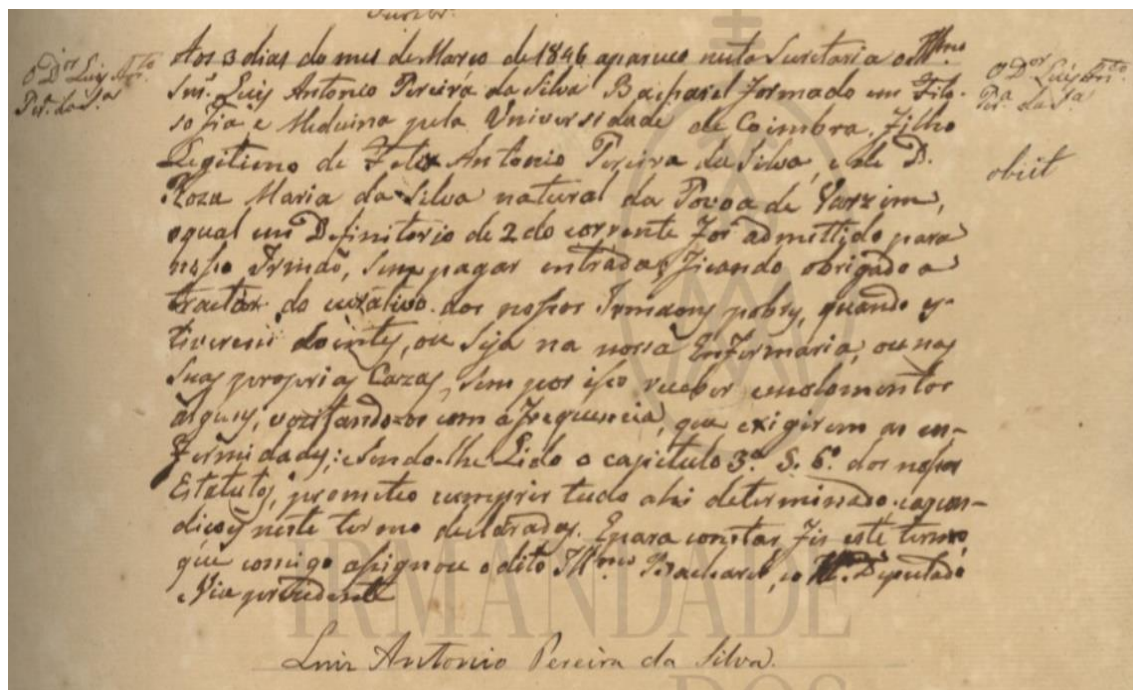 Secretr.
O Dor Luis Anto
Per. da Sa
Aos 3 dias do mes de Março de 1846 apareceo nesta Secretaria o Illmo
Snr. Luis Antonio Pereira da Silva Bacharel formado em Filo-
sofia e Medicina pela Universidade de Coimbra, Filho
Legitimo de Felix Antonio Pereira da Silva, e de D.
Roza Maria da Silva natural da Povoa de Varzim,
oqual em Definitorio de 2 do corrente foi admettido para
nosso Irmão, sem pagar entrada, ficando obrigado a
tractar do curativo dos nossos Irmaons pobres, quando es-
tiverem doentes, ou seja na nossa Enfermaria, ou nas
suas proprias Cazas, sem por isso receber emolomentos
alguns, vizitando-os com a frequencia, que exigirem as en-
fermidades; e sendo-lhe Lido o capitulo 3º. §. 6º. dos nossos
Estatutos, prometeo cumprir tudo ahi determinado, e as con-
diçoens neste termo declaradas. E para constar fis este termo,
que comigo assignou o dito Illmo Bacharel, e o Deputado
e Vice presidente
Luis Antonio Pereira da Silva.
O Dor Luis Anto
Pera da Sa
obiit
IRMANDADE
DOS